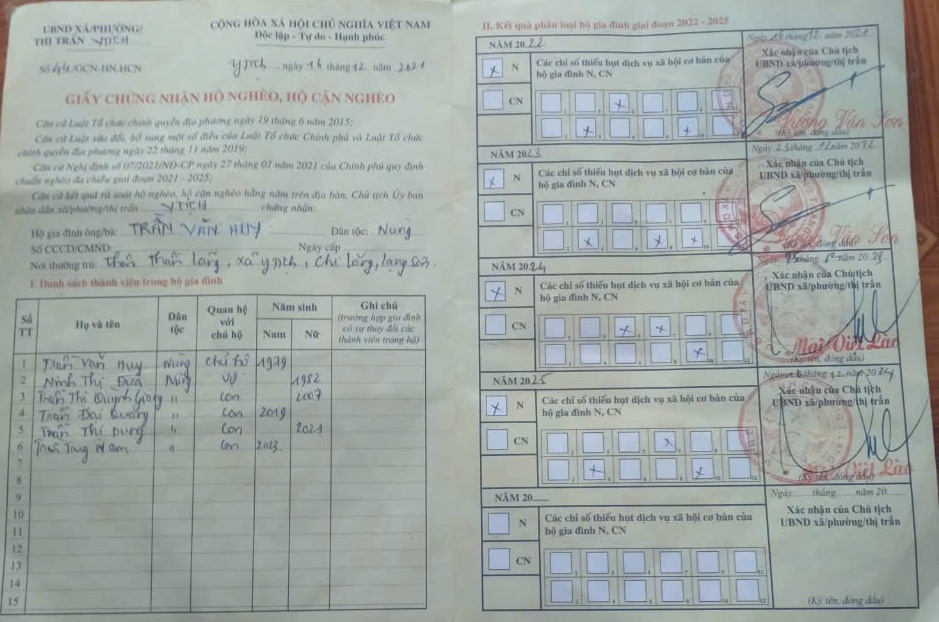 UBND XÃ/PHƯỜNG/
THỊ TRẤN YTỊCH
CỘNG HÒA XÃ HỘI CHỦ NGHĨA VIỆT NAM
Độc lập - Tự do - Hạnh phúc
/GCN-HN.HCN
YTỊCH, ngày 16 tháng 12 năm 2021
GIẤY CHỨNG NHẬN HỘ NGHÈO, HỘ CẬN NGHÈO
Căn cứ Luật Tổ chức chính quyền địa phương ngày 19 tháng 6 năm 2015;
Căn cứ Luật sửa đổi, bổ sung một số điều của Luật Tổ chức Chính phủ và Luật Tổ chức
chính quyền địa phương ngày 22 tháng 11 năm 2019;
Căn cứ Nghị định số 07/2021/NĐ-CP ngày 27 tháng 01 năm 2021 của Chính phủ quy định
chuẩn nghèo đa chiều giai đoạn 2021 - 2025;
Căn cứ kết quả rà soát hộ nghèo, hộ cận nghèo hằng năm trên địa bàn, Chủ tịch Ủy ban
nhân dân xã/phường/thị trấn YTỊCH chứng nhận:
Hộ gia đình ông/bà: TRẦN VĂN HUY Dân tộc: Nùng
Số CCCD/CMND: Ngày cấp
Nơi thường trú: Thôn Than Lãng, xã Y Tịch, Chi Lăng, Lạng Sơn.
I. Danh sách thành viên trong hộ gia đình
Số TT Họ và tên Dân tộc Quan hệ với chủ hộ Năm sinh Nam Nữ Ghi chú (trường hợp gia đình có sự thay đổi các thành viên trong hộ)
1 Trần Văn Huy Nùng Chủ hộ 1979
2 Ninh Thị Đưa Nùng Vợ 1982
3 Trần Thị Quỳnh Giang " Con 2007
4 Trần Đại Quang " Con 2019
5 Trần Thị Dung " Con 2021
6 Trần Nam " Con 2023
7
8
9
10
11
12
13
14
15
II. Kết quả phân loại hộ gia đình giai đoạn 2022 - 2025
NĂM 2022
x N
CN
Các chỉ số thiếu hụt dịch vụ xã hội cơ bản của
hộ gia đình N, CN
Ngày 16 tháng 12 năm 2021
Xác nhận của Chủ tịch
UBND xã/phường/thị trấn
(Ký tên, đóng dấu)
Văn Sơn
NĂM 2023
x N
CN
Các chỉ số thiếu hụt dịch vụ xã hội cơ bản của
hộ gia đình N, CN
Ngày tháng 12 năm 2022
Xác nhận của Chủ tịch
UBND xã/phường/thị trấn
(Ký tên, đóng dấu)
Văn Sơn
NĂM 2024
x N
CN
Các chỉ số thiếu hụt dịch vụ xã hội cơ bản của
hộ gia đình N, CN
Ngày tháng 12 năm 2023
Xác nhận của Chủ tịch
UBND xã/phường/thị trấn
(Ký tên, đóng dấu)
Mai Việt Lào
NĂM 2025
x N
CN
Các chỉ số thiếu hụt dịch vụ xã hội cơ bản của
hộ gia đình N, CN
Ngày tháng 12 năm 2024
Xác nhận của Chủ tịch
UBND xã/phường/thị trấn
(Ký tên, đóng dấu)
Mai Việt Lào
NĂM 20
N
CN
Các chỉ số thiếu hụt dịch vụ xã hội cơ bản của
hộ gia đình N, CN
Ngày tháng năm 20
Xác nhận của Chủ tịch
UBND xã/phường/thị trấn
(Ký tên, đóng dấu)